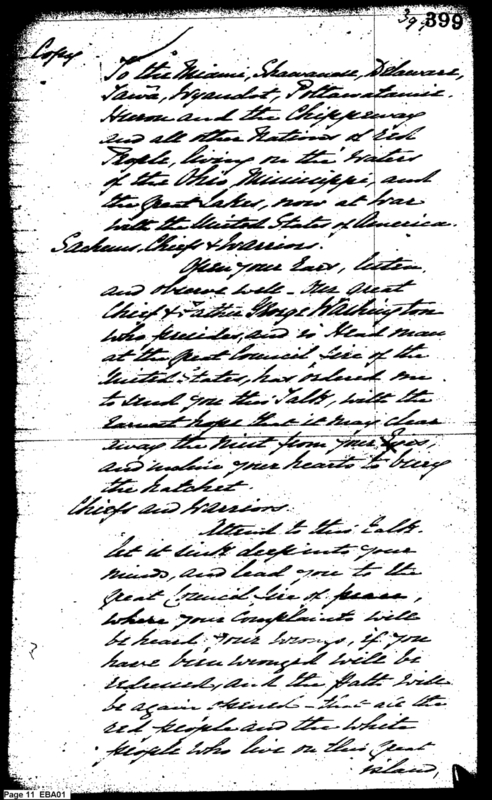 399
399
Copy
To the Miami, Shawanese, Delaware,
Tawa, Wyandot, Pottawatamie
Huron and the Chippeway
and all other Nations of Red
People, living on the waters
of the Ohio, Mississippi, and
the great Lakes, now at War
with the United States of America.
Sachems, Chiefs & Warriors.
Open your Ears, listen
and observe well - Our great
Chief & Father George Washington
who presides, and is Head man
at the great Council fire of the
United States, has ordered me
to send you this Talk, with the
Earnest hope that it may clear
away the mist from your Eyes,
and incline your hearts to bury
the hatchet.
Chiefs and Warriors.
Attend to this Talk.
let it sink deep into your
minds, and lead you to the
great Council fire of peace,
where your Complaints will
be heard. Your wrongs, if you
have been wronged will be
redressed, and the path will
be again opened - that all the
red people and the white
people who live on this great
island,
Page 11 EBA01